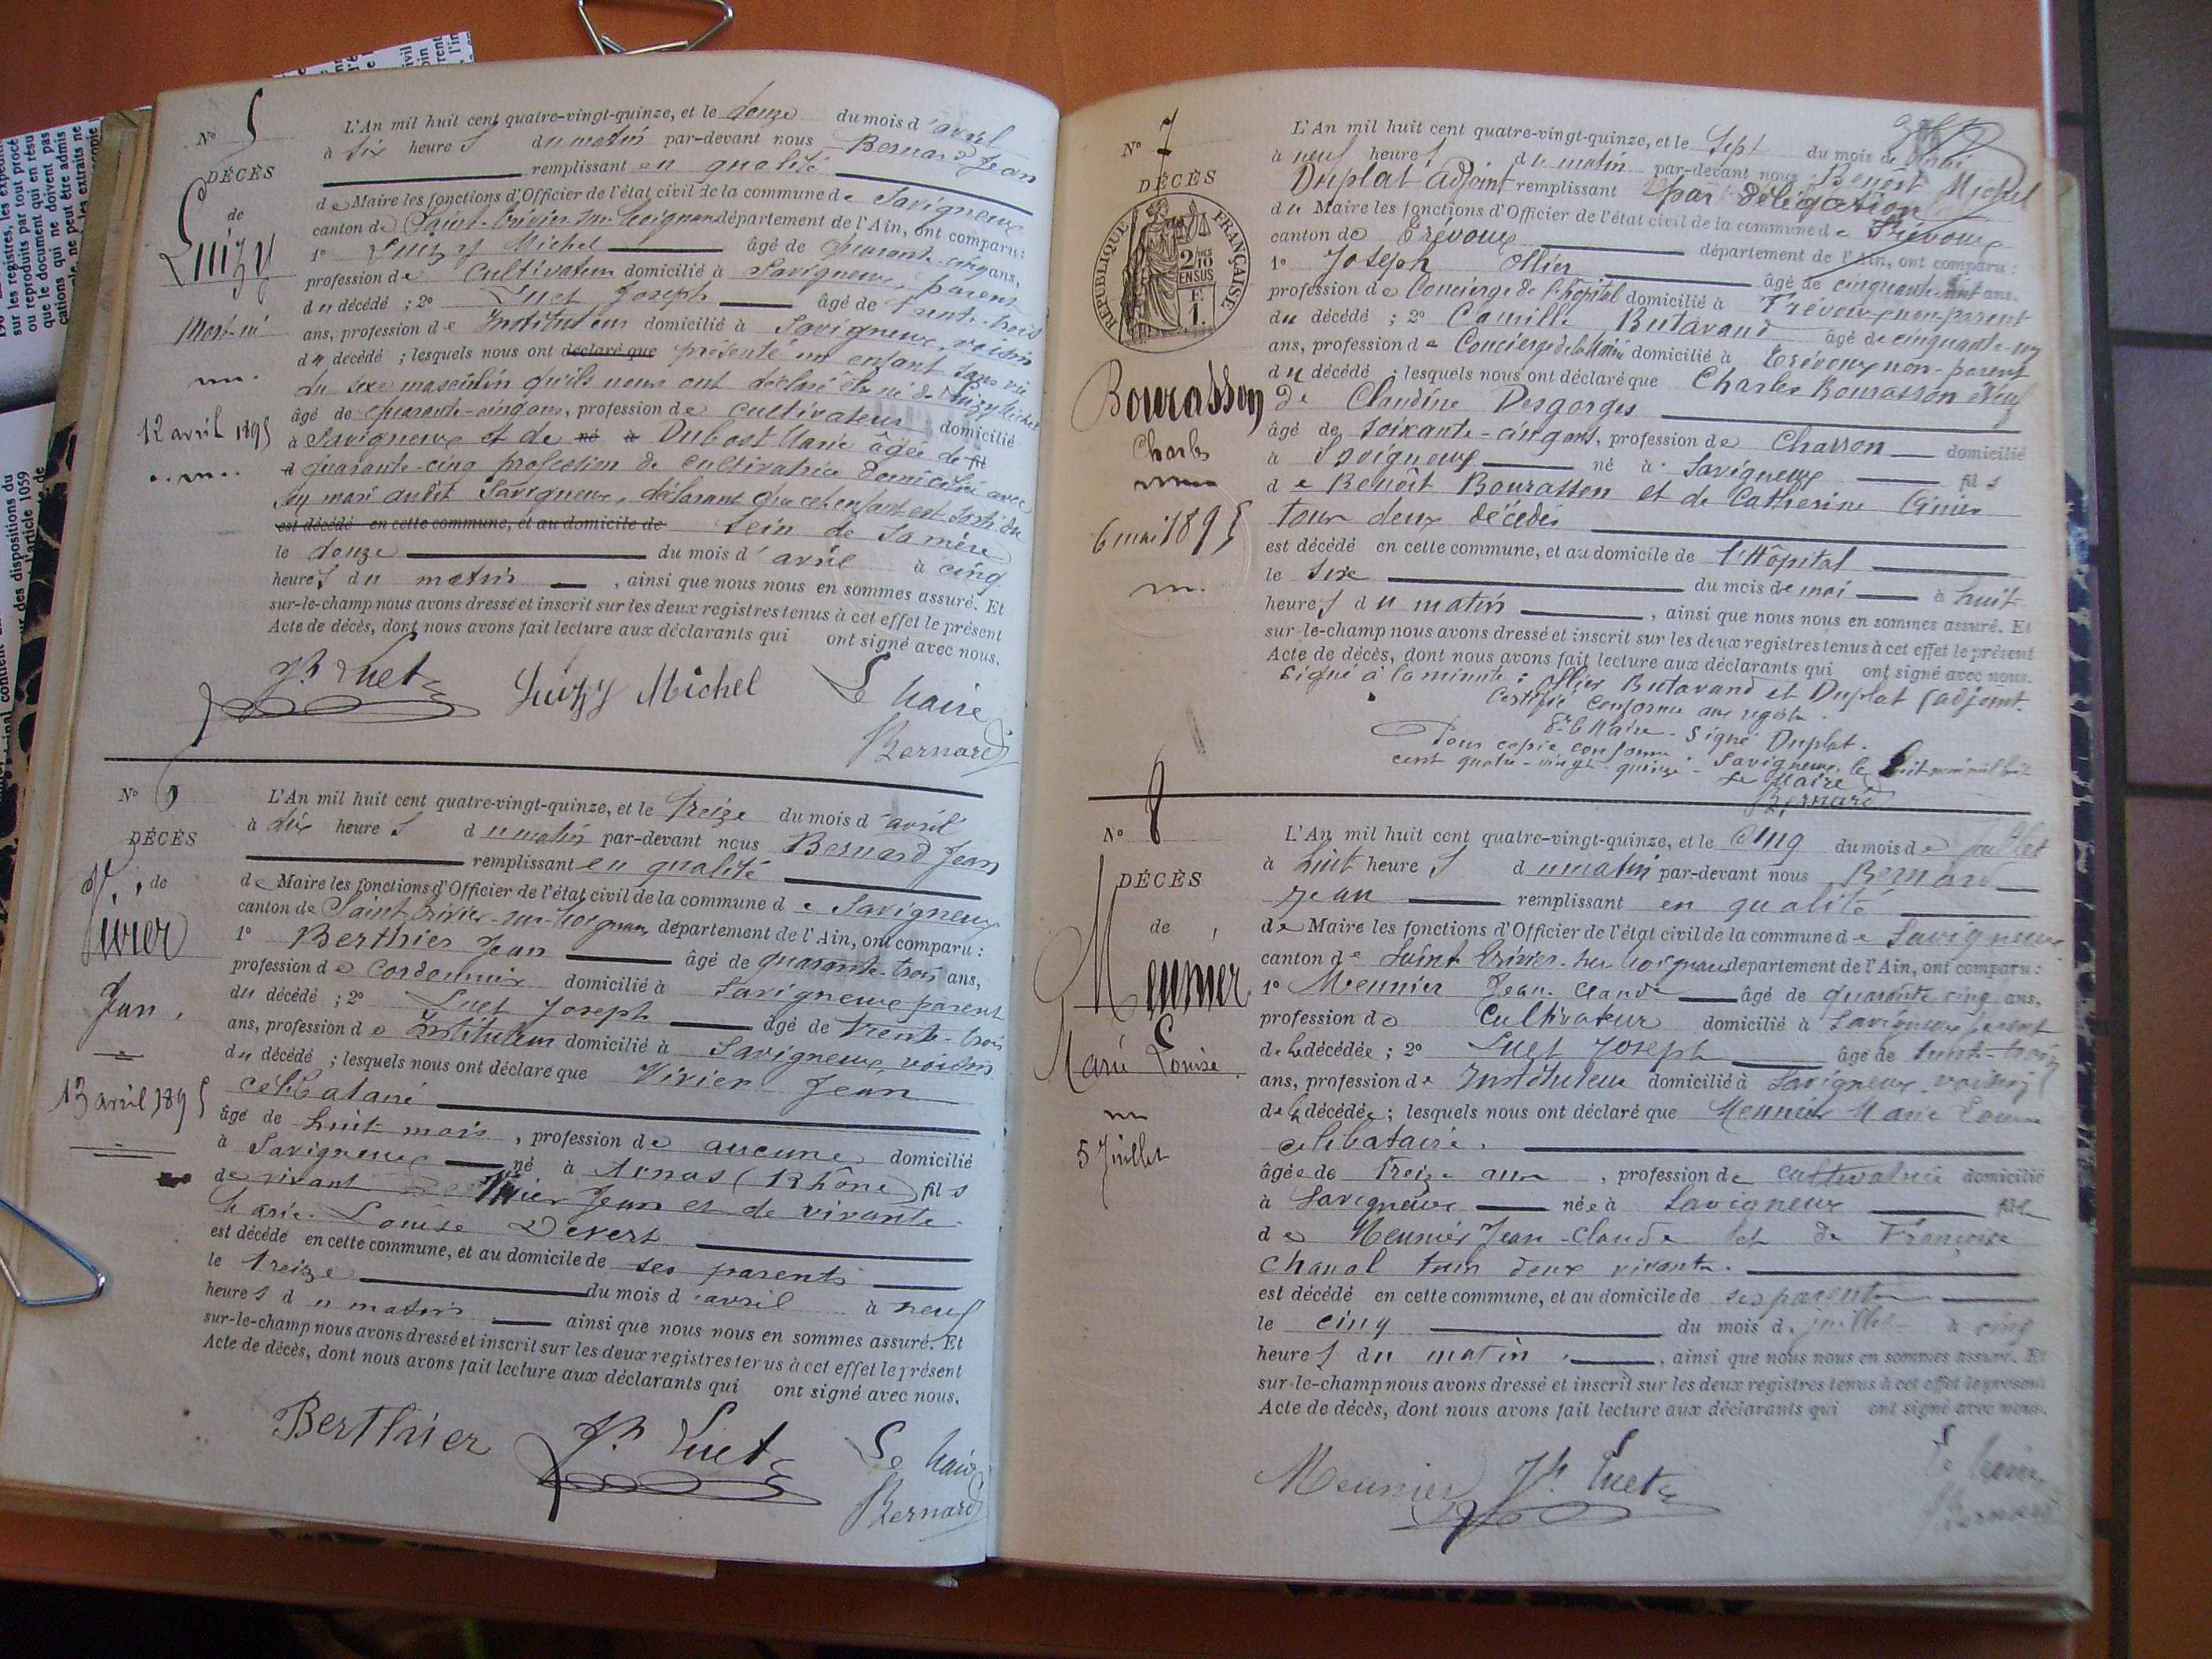 N° 5
DÉCÈS
de
Luizy
Mort-né
12 avril 1895
L'An mil huit cent quatre-vingt-quinze, et le douze du mois d'avril
à six heures du matin par-devant nous Bernard Jean
remplissant en qualité
de Maire les fonctions d'Officier de l'état civil de la commune de Savigneux
canton de Saint-Trivier-sur-Moignans département de l'Ain, ont comparu :
1° Luizy Michel âgé de quarante-cinq ans,
profession de cultivateur domicilié à Savigneux, parent
du décédé ; 2° Luet Joseph âgé de trente-trois
ans, profession de Instituteur domicilié à Savigneux, voisin
du décédé ; lesquels nous ont déclaré que présenté un enfant sans vie
du sexe masculin qu'ils nous ont déclaré être né de Luizy Michel
âgé de quarante-cinq ans, profession de cultivateur domicilié
à Savigneux et de né à Dubost Marie âgée de fil
d quarante-cinq profession de cultivatrice domiciliée avec
son mari audit Savigneux, déclarant que cet enfant est sorti du
est décédé en cette commune, et au domicile de sein de sa mère
le douze du mois d'avril à cinq
heures du matin, ainsi que nous nous en sommes assuré. Et
sur-le-champ nous avons dressé et inscrit sur les deux registres tenus à cet effet le présent
Acte de décès, dont nous avons fait lecture aux déclarants qui ont signé avec nous.
Jh Luet Luizy Michel Le Maire
Bernard
N° 6
DÉCÈS
de
Vivier
Jean
13 avril 1895
L'An mil huit cent quatre-vingt-quinze, et le treize du mois d'avril
à dix heures du matin par-devant nous Bernard Jean
remplissant en qualité
de Maire les fonctions d'Officier de l'état civil de la commune de Savigneux
canton de Saint-Trivier-sur-Moignans département de l'Ain, ont comparu :
1° Berthier Jean âgé de quarante-trois ans,
profession de cordonnier domicilié à Savigneux parent
du décédé ; 2° Luet Joseph âgé de trente-trois
ans, profession de Instituteur domicilié à Savigneux, voisin
du décédé ; lesquels nous ont déclaré que Vivier Jean
célibataire
âgé de huit mois, profession de aucune domicilié
à Savigneux né à Arnas (Rhône) fils
de vivant Vivier Jean et de vivante
Marie-Louise Devert
est décédé en cette commune, et au domicile de ses parents
le treize du mois d'avril à neuf
heures du matin ainsi que nous nous en sommes assuré. Et
sur-le-champ nous avons dressé et inscrit sur les deux registres tenus à cet effet le présent
Acte de décès, dont nous avons fait lecture aux déclarants qui ont signé avec nous.
Berthier Jh Luet Le Maire
Bernard
N° 7
DÉCÈS
RÉPUBLIQUE FRANÇAISE
2/10 EN SUS
F. 1.
Bourasson
Charles
6 mai 1895
L'An mil huit cent quatre-vingt-quinze, et le Sept du mois de mai
à neuf heures du matin par-devant nous Benoît Michel
Duplat adjoint remplissant par délégation
du Maire les fonctions d'Officier de l'état civil de la commune de Trévoux
canton de Trévoux département de l'Ain, ont comparu :
1° Joseph Ollier âgé de cinquante-huit ans.
profession de Concierge de l'hôpital domicilié à Trévoux non-parent
du décédé ; 2° Camille Butavand âgé de cinquante-un
ans, profession de Concierge de la Mairie domicilié à Trévoux non-parent
du décédé ; lesquels nous ont déclaré que Charles Bourasson veuf
de Claudine Desgorges
âgé de soixante-cinq ans, profession de Charron domicilié
à Savigneux né à Savigneux fils
de Benoît Bourasson et de Catherine
tous deux décédés
est décédé en cette commune, et au domicile de l'Hôpital
le six du mois de mai à huit
heures du matin, ainsi que nous nous en sommes assuré. Et
sur-le-champ nous avons dressé et inscrit sur les deux registres tenus à cet effet le présent
Acte de décès, dont nous avons fait lecture aux déclarants qui ont signé avec nous.
Signé à la minute : Ollier Butavand et Duplat (adjoint.
Certifié conforme aux registres.
Pr le Maire - Signé Duplat.
Pour copie conforme Savigneux, le huit mai mil huit
cent quatre-vingt-quinze - Le Maire
Bernard
N° 8
DÉCÈS
de
Meunier
Marie Louise
5 Juillet
L'An mil huit cent quatre-vingt-quinze, et le cinq du mois de juillet
à huit heures du matin par-devant nous Bernard
Jean remplissant en qualité
de Maire les fonctions d'Officier de l'état civil de la commune de Savigneux
canton de Saint Trivier-sur-Moignans département de l'Ain, ont comparu :
1° Meunier Jean-Claude âgé de quarante-cinq ans,
profession de Cultivateur domicilié à Savigneux parent
de la décédée ; 2° Luet Joseph âgé de trente-trois
ans, profession de Instituteur domicilié à Savigneux voisin
de la décédée ; lesquels nous ont déclaré que Meunier Marie Louise
célibataire.
âgée de treize ans, profession de cultivatrice domicilié
à Savigneux née à Savigneux fille
de Meunier Jean-Claude et de Françoise
Chanal tous deux vivants.
est décédé en cette commune, et au domicile de ses parents
le cinq du mois de juillet à cinq
heures du matin, ainsi que nous nous en sommes assuré. Et
sur-le-champ nous avons dressé et inscrit sur les deux registres tenus à cet effet le présent
Acte de décès, dont nous avons fait lecture aux déclarants qui ont signé avec nous.
Meunier Jh Luet Le Maire
Bernard